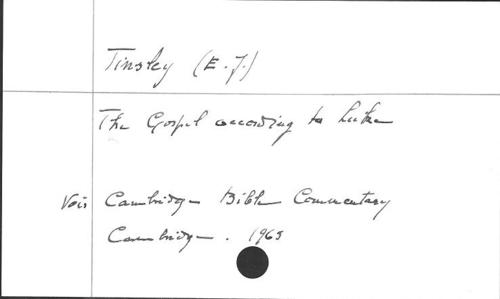 Tinsley (E. J.)
The Gospel according to Luke
Vois Cambridge Bible Commentary
Cambridge. 1965